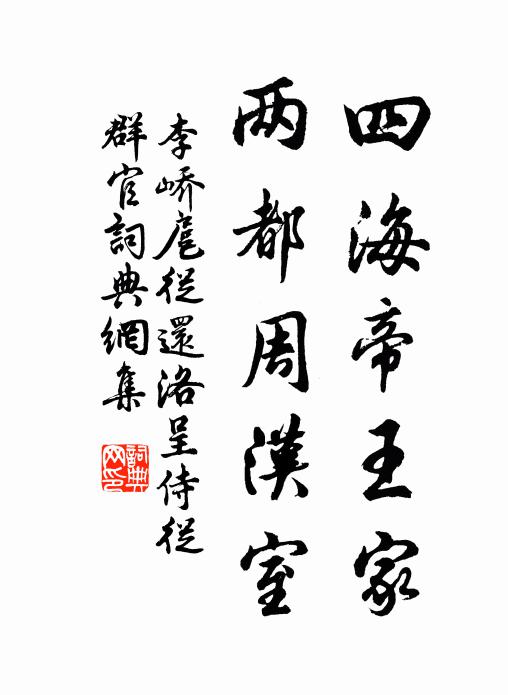 四海帝王家
两都周漢室
李嶠扈從還洛呈侍從
群官詞典網集
詞典网印